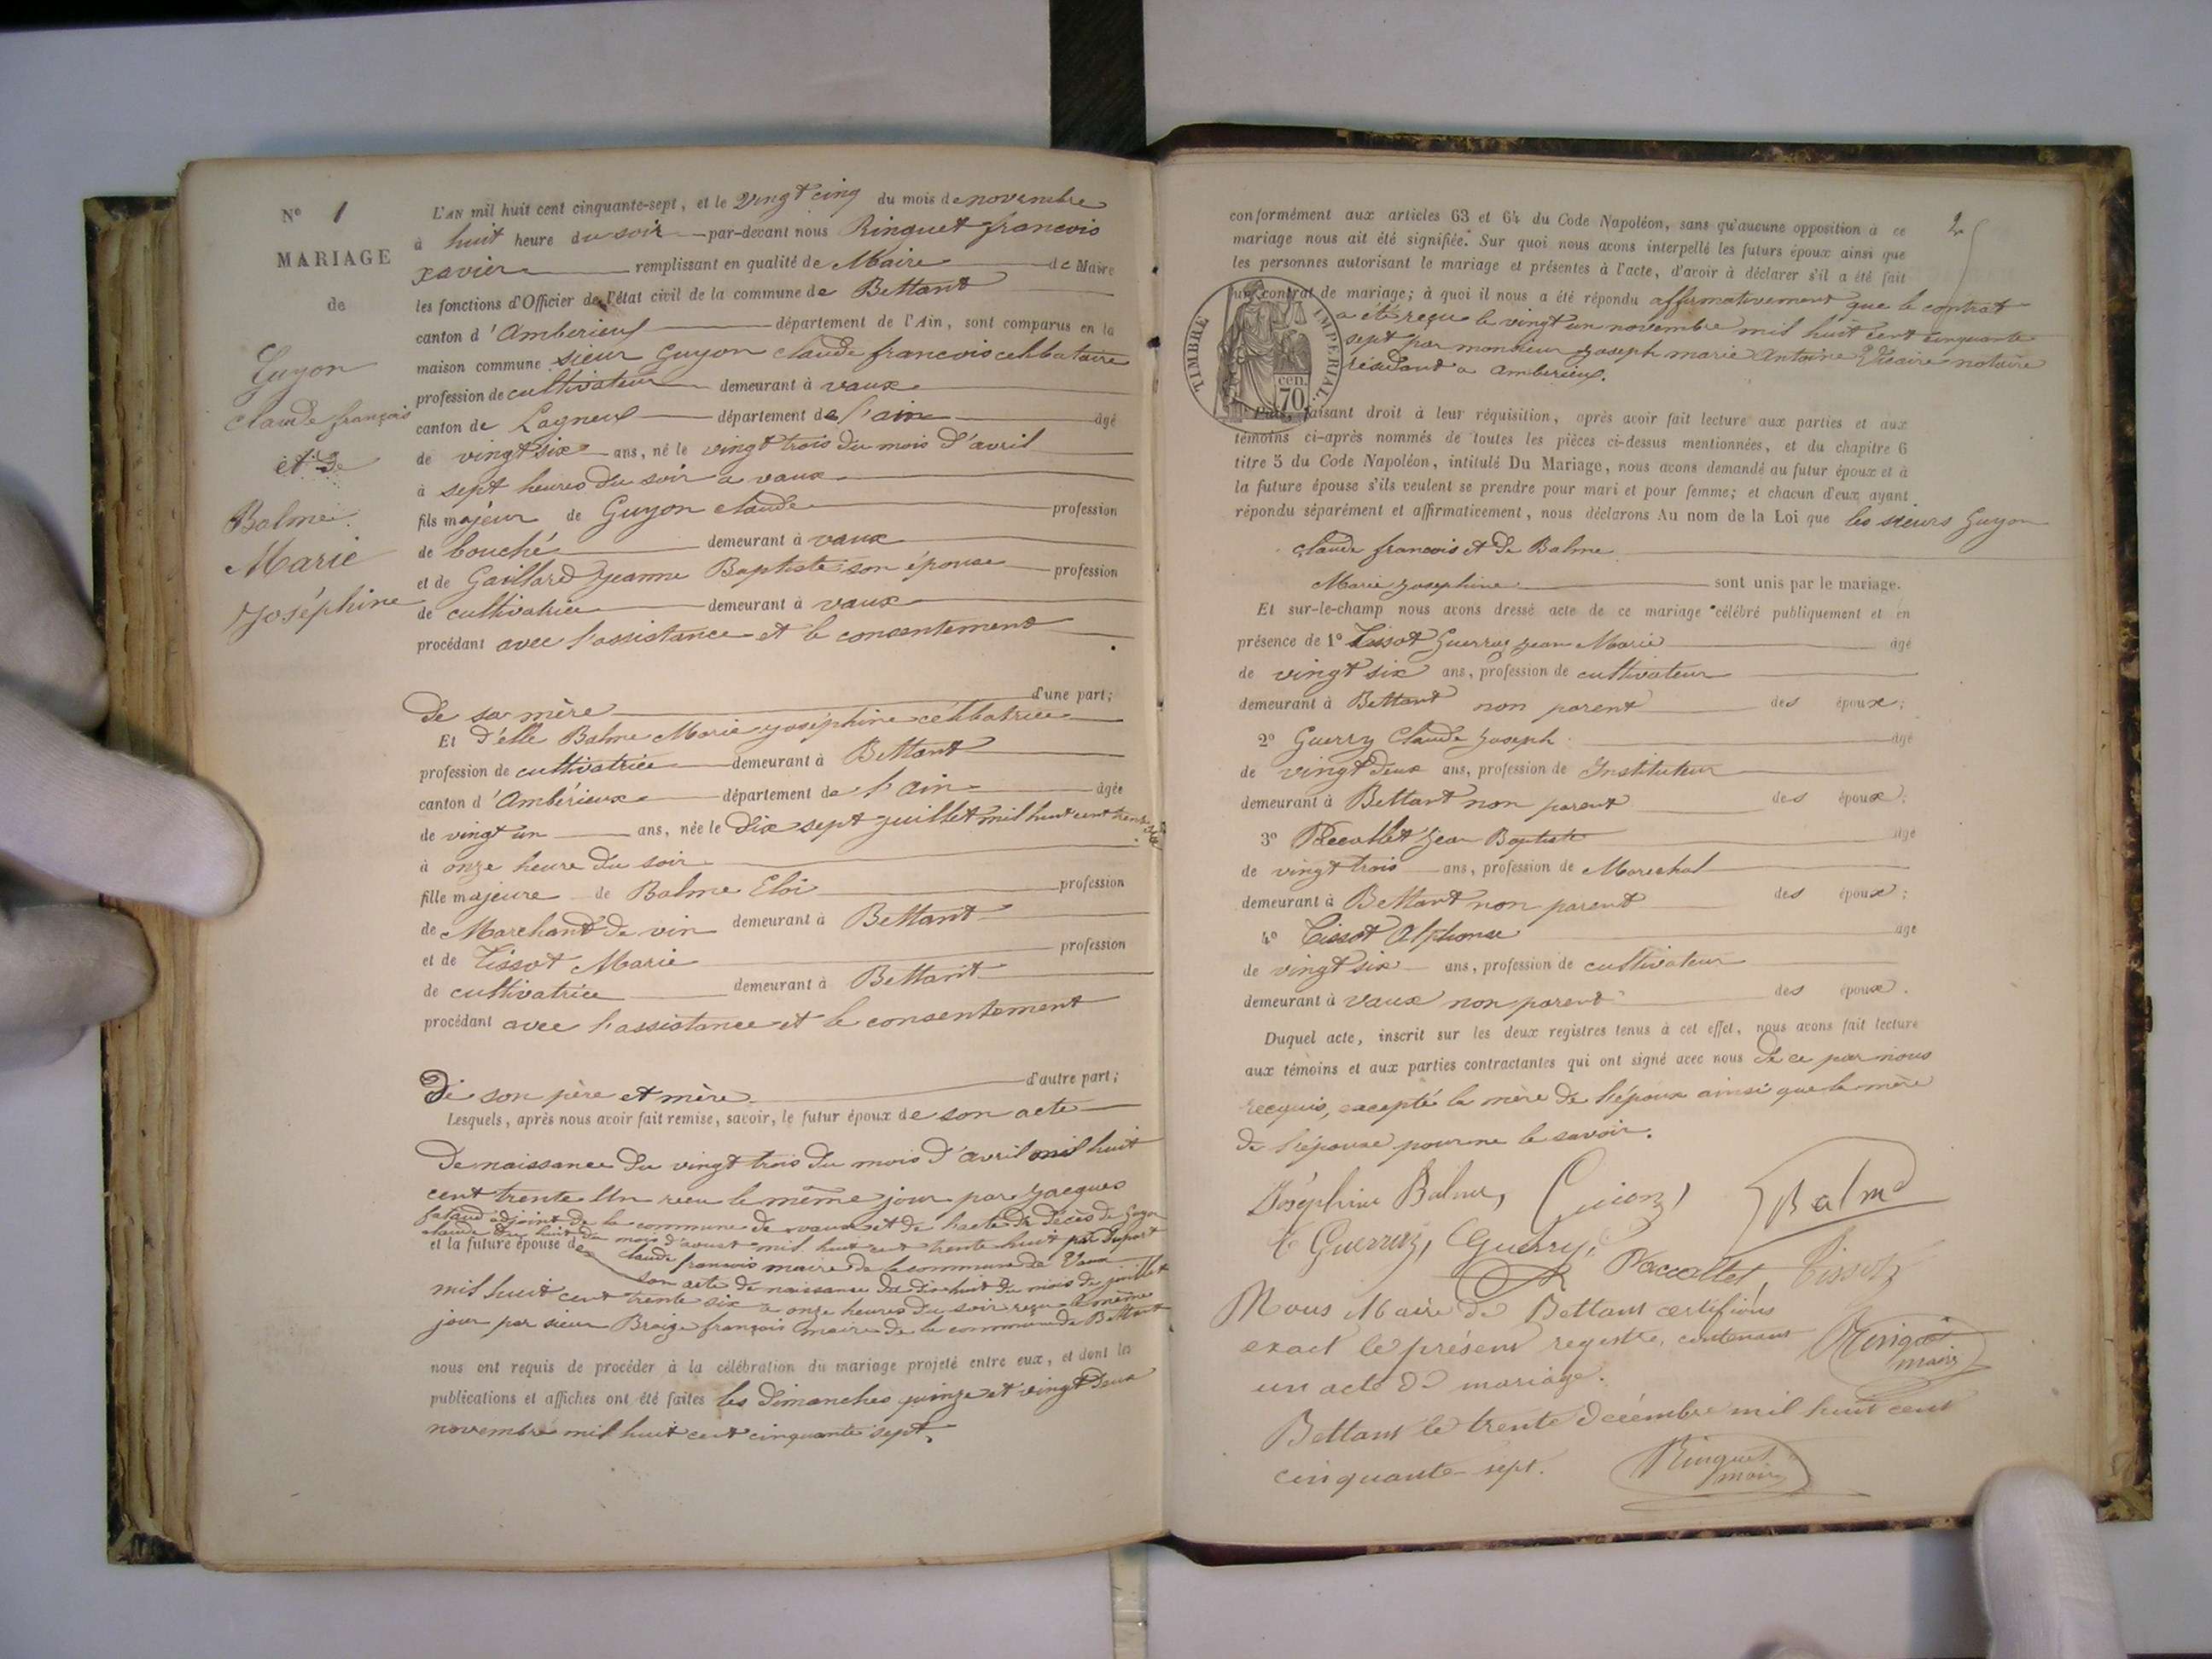 N° 1
MARIAGE
de
Guyon
Claude françois
et de
Balme
Marie
Joséphine
L'AN mil huit cent cinquante-sept, et le vingt cinq du mois de novembre
à huit heure du soir par-devant nous Ringuet francois
xavier remplissant en qualité de Maire de Maire
les fonctions d'Officier de l'état civil de la commune de Bettant
canton d'Amberieux département de l'Ain, sont comparus en la
maison commune sieur Guyon claude francois celibataire
profession de cultivateur demeurant à vaux
canton de Lagneux département de l'ain âgé
de vingt six ans, né le vingt trois du mois d'avril
à sept heures du soir a vaux
fils majeur de Guyon claude profession
de bouché demeurant à vaux
et de Gaillard Jeanne Baptiste son épouse profession
de cultivatrice demeurant à vaux
procédant avec l'assistance et le consentement
de sa mère d'une part;
Et d'elle Balme Marie Joséphine célibatrice
profession de cultivatrice demeurant à Bettant
canton d'Ambérieux département de l'Ain âgée
de vingt un ans, née le dix sept juillet mil huit cent trente six
à onze heure du soir
fille majeure de Balme Eloi profession
de Marchand de vin demeurant à Bettant
et de Tissot Marie profession
de cultivatrice demeurant à Bettant
procédant avec l'assistance et le consentement
De son père et mère d'autre part;
Lesquels, après nous avoir fait remise, savoir, le futur époux de son acte
De naissance du vingt trois du mois d'avril mil huit
cent trente Un recu le même jour par Jacques
adjoint de la commune de vaux et de l'acte de décès de Guyon
claude du huit du mois d'aoust mil huit cent trente huit par Dupont
et la future épouse de claude francois maire de la commune de Vaux
son acte de naissance du dix huit du mois de juillet
mil huit cent trente six a onze heures du soir reçu le même
jour par sieur françois maire de la commune de Bettant
nous ont requis de procéder à la célébration du mariage projeté entre eux, et dont les
publications et affiches ont été faites les dimanches quinze et vingt deux
novembre mil huit cent cinquante sept.
2
conformément aux articles 63 et 64 du Code Napoléon, sans qu'aucune opposition à ce
mariage nous ait été signifiée. Sur quoi nous avons interpellé les futurs époux ainsi que
les personnes autorisant le mariage et présentes à l'acte, d'avoir à déclarer s'il a été fait
un contrat de mariage; à quoi il nous a été répondu affirmativement que le contrat
a été reçu le vingt un novembre mil huit cent cinquante
sept par monsieur Joseph marie Antoine Vicaire notaire
résidant a amberieux.
TIMBRE IMPERIAL
cen.
70
Puis, faisant droit à leur réquisition, après avoir fait lecture aux parties et aux
témoins ci-après nommés de toutes les pièces ci-dessus mentionnées, et du chapitre 6
titre 5 du Code Napoléon, intitulé Du Mariage, nous avons demandé au futur époux et à
la future épouse s'ils veulent se prendre pour mari et pour femme; et chacun d'eux ayant
répondu séparément et affirmativement, nous déclarons Au nom de la Loi que les sieurs Guyon
claude francois et de Balme
Marie Josephine sont unis par le mariage.
Et sur-le-champ nous avons dressé acte de ce mariage célébré publiquement et en
présence de 1° Tissot Guerraz Jean Marie âgé
de vingt six ans, profession de cultivateur
demeurant à Bettant non parent des époux;
2° Guerry Claude Joseph âgé
de vingt deux ans, profession de Instituteur
demeurant à Bettant non parent des époux;
3° Jean Baptiste âgé
de vingt trois ans, profession de Marechal
demeurant à Bettant non parent des époux;
4° Tissot Alphonse âgé
de vingt six ans, profession de cultivateur
demeurant à vaux non parent des époux.
Duquel acte, inscrit sur les deux registres tenus à cet effet, nous avons fait lecture
aux témoins et aux parties contractantes qui ont signé avec nous de ce par nous
recquis, excepté la mère de l'époux ainsi que la mère
de l'épouse pour ne le savoir.
Joséphine Balme, Guion, Balme
T Guerraz, Guerry, Paccallet, Tissot
Nous Maire de Bettant certifions
exact le présent registre, contenant Ringuet
maire
un acte de mariage.
Bettant le trente décembre mil huit cent
cinquante-sept. Ringuet
maire